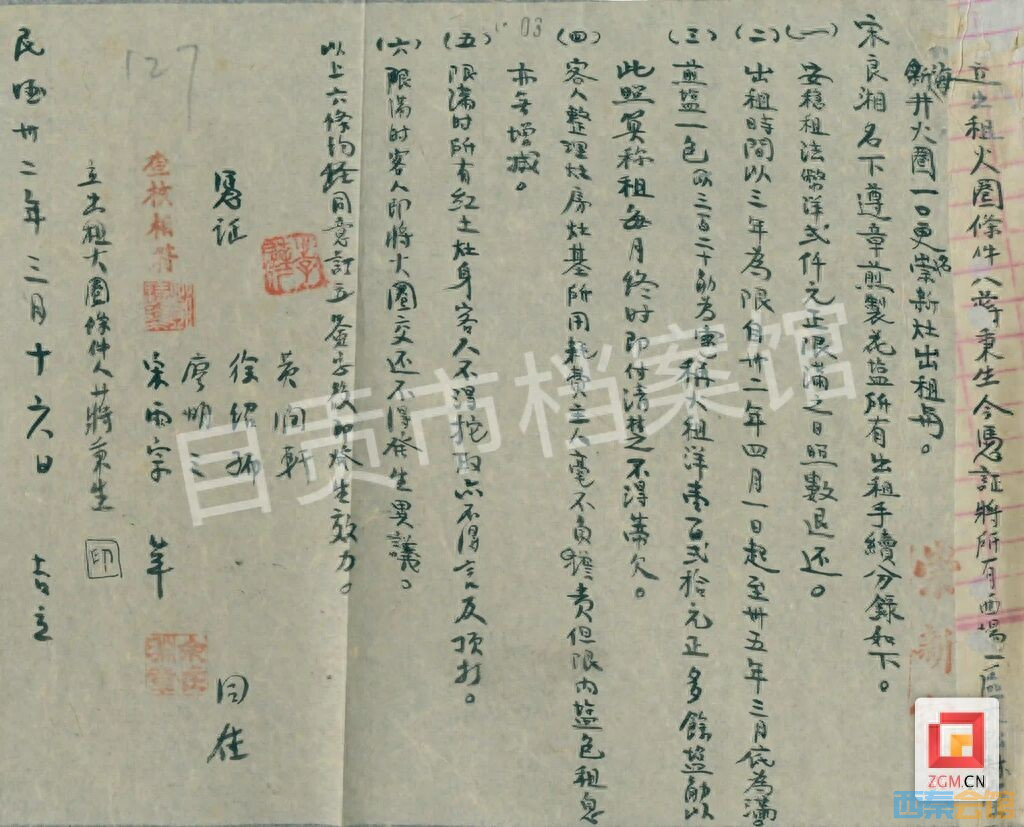 立出租火圈條件人蔣秉生今憑証將所有西場一區
海新井火圈一口更名崇新灶出租與。
宋良湘名下遵章煎製花塩所有出租手續分錄如下。
(一) 安穩租法幣洋弍仟元正限滿之日照數退还。
(二) 出租時間以三年為限自卅二年四月一日起至卅五年三月底為滿。
(三) 煎塩一色以三百二十觔為定稱大租洋壹百弍拾元正多餘塩觔以
此照算称租每月終时即付清楚不得蒂欠。
(四) 客人整理灶房灶基所用耗費主人毫不負責但限內塩色租息
亦無增減。
(五) 限滿时所有紅土灶身客人不得挖取亦不得言及頂打。
(六) 限滿时客人即將火圈交还不得發生異議。
以上六條均經同意訂立簽字後即發生效力。
憑証
黃潤軒
徐紹
廖明之
宋雨宗 筆
同在
查核相符
立出租火圈條件人蔣秉生 印
民國卅二年三月十六日 吉立
崇新
127
03
自贡市档案馆
ZGM.CN
西秦会馆